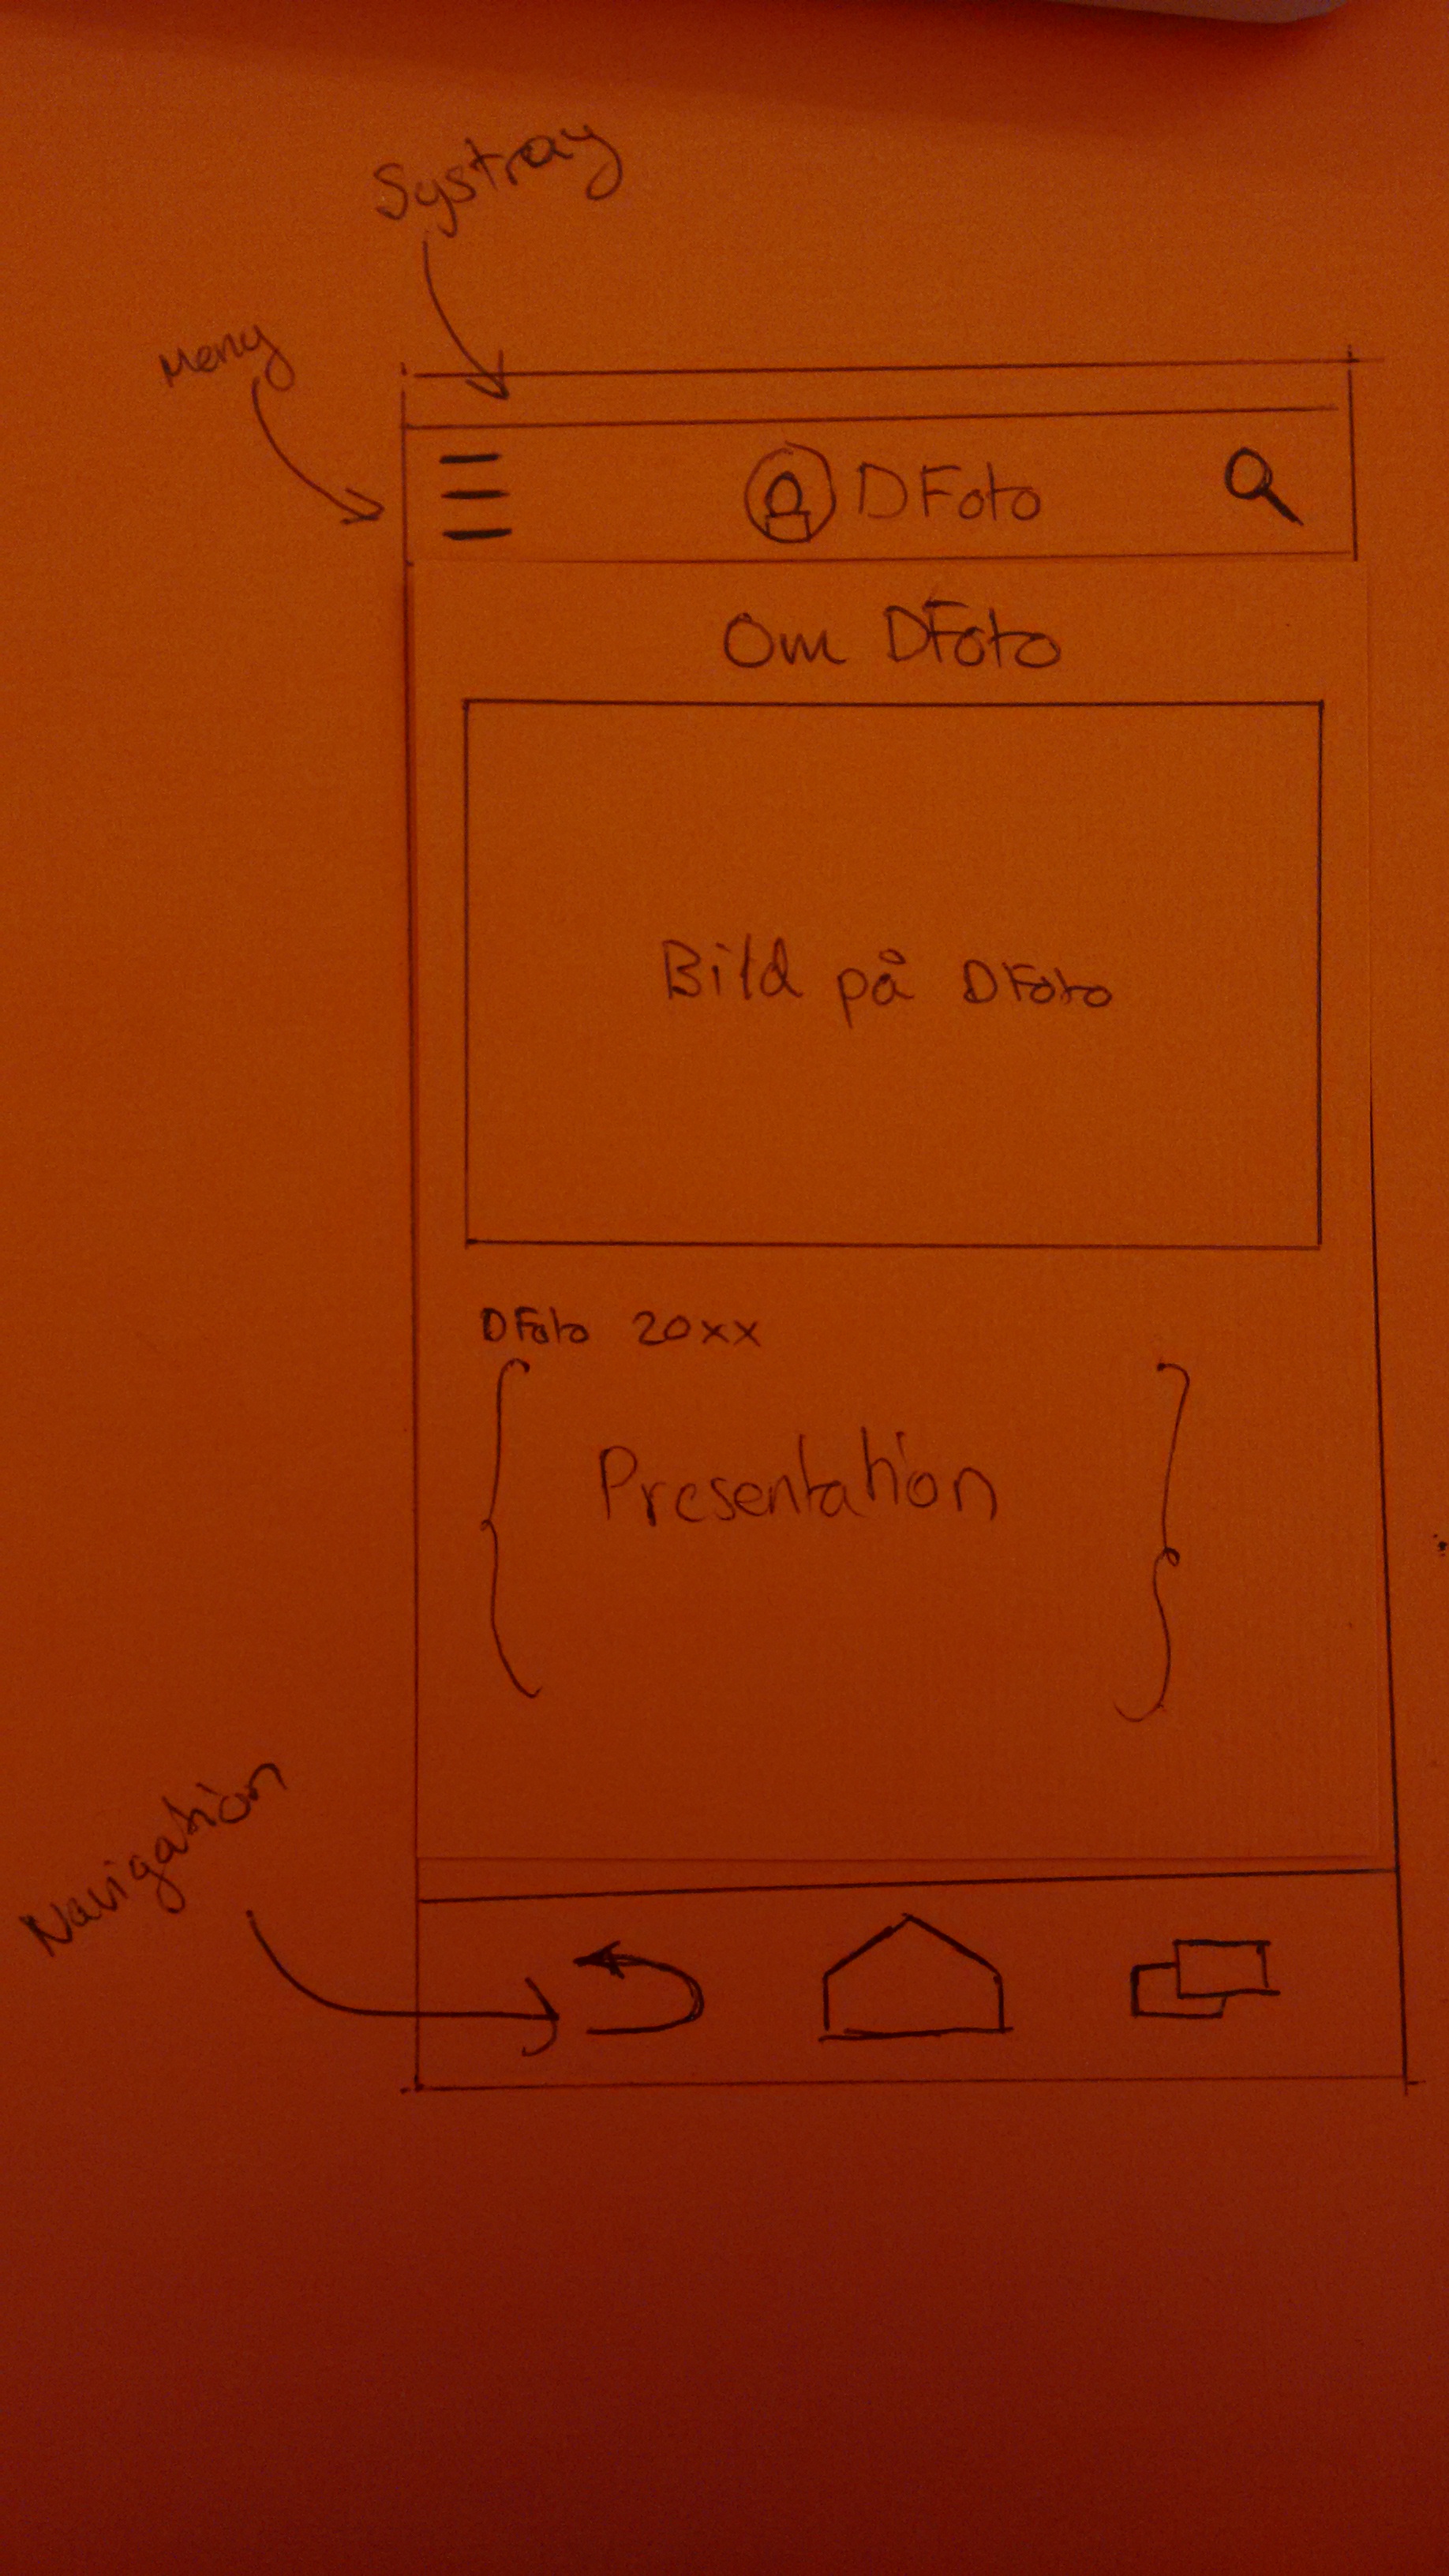 Systray
Meny
DFoto
Om DFoto
Bild på DFoto
DFoto 20xx
Presentation
Navigation